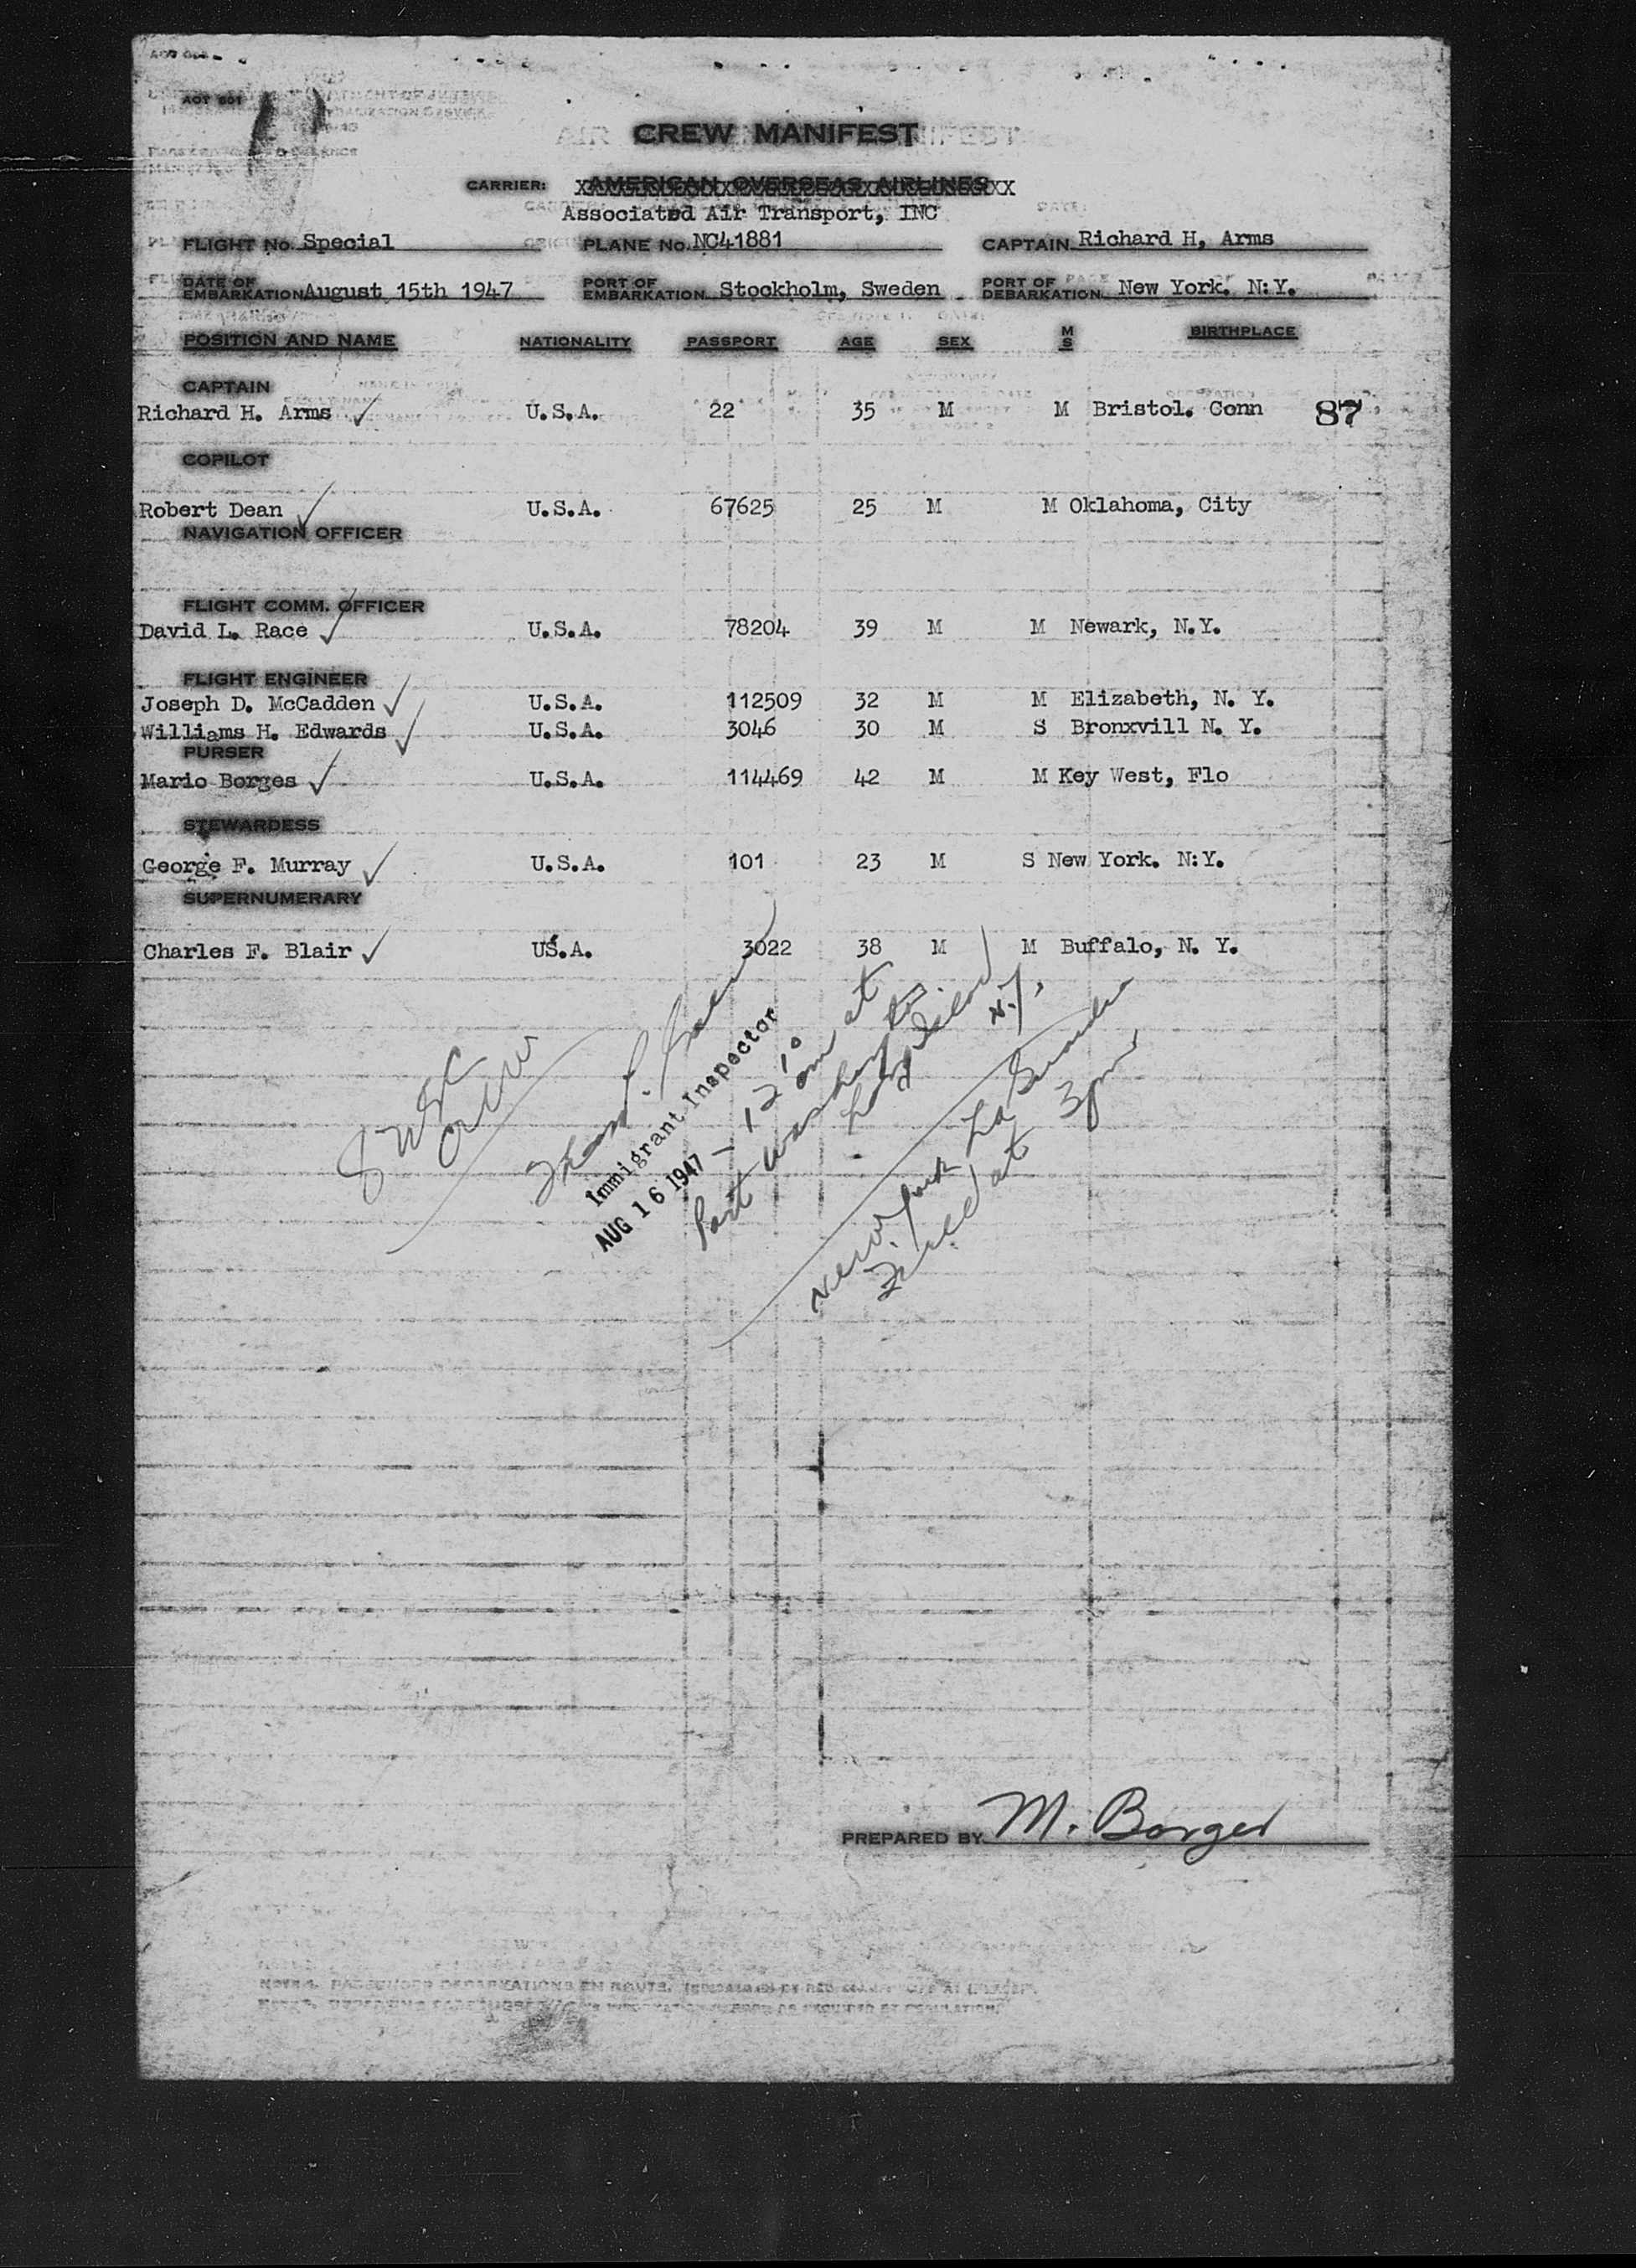 AOT 801
CREW MANIFEST
CARRIER: AMERICAN OVERSEAS AIRLINES
Associated Air Transport, INC
FLIGHT No. Special PLANE No. NC41881 CAPTAIN Richard H, Arms
DATE OF EMBARKATION August 15th 1947 PORT OF EMBARKATION Stockholm, Sweden PORT OF DEBARKATION New York. N:Y.
POSITION AND NAME NATIONALITY PASSPORT AGE SEX M S BIRTHPLACE
CAPTAIN
Richard H. Arms U.S.A. 22 35 M M Bristol. Conn 87
COPILOT
Robert Dean U.S.A. 67625 25 M M Oklahoma, City
NAVIGATION OFFICER
FLIGHT COMM. OFFICER
David L. Race U.S.A. 78204 39 M M Newark, N.Y.
FLIGHT ENGINEER
Joseph D. McCadden U.S.A. 112509 32 M M Elizabeth, N. Y.
Williams H. Edwards U.S.A. 3046 30 M S Bronxvill N. Y.
PURSER
Mario Borges U.S.A. 114469 42 M M Key West, Flo
STEWARDESS
George F. Murray U.S.A. 101 23 M S New York. N:Y.
SUPERNUMERARY
Charles F. Blair US.A. 3022 38 M M Buffalo, N. Y.
8 USC
crew
Immigrant Inspector
AUG 16 1947 - 12 10 am at
Port Washington
Long Island
N.Y.
New York La Guardia
Filed at 3pm
PREPARED BY M. Borges